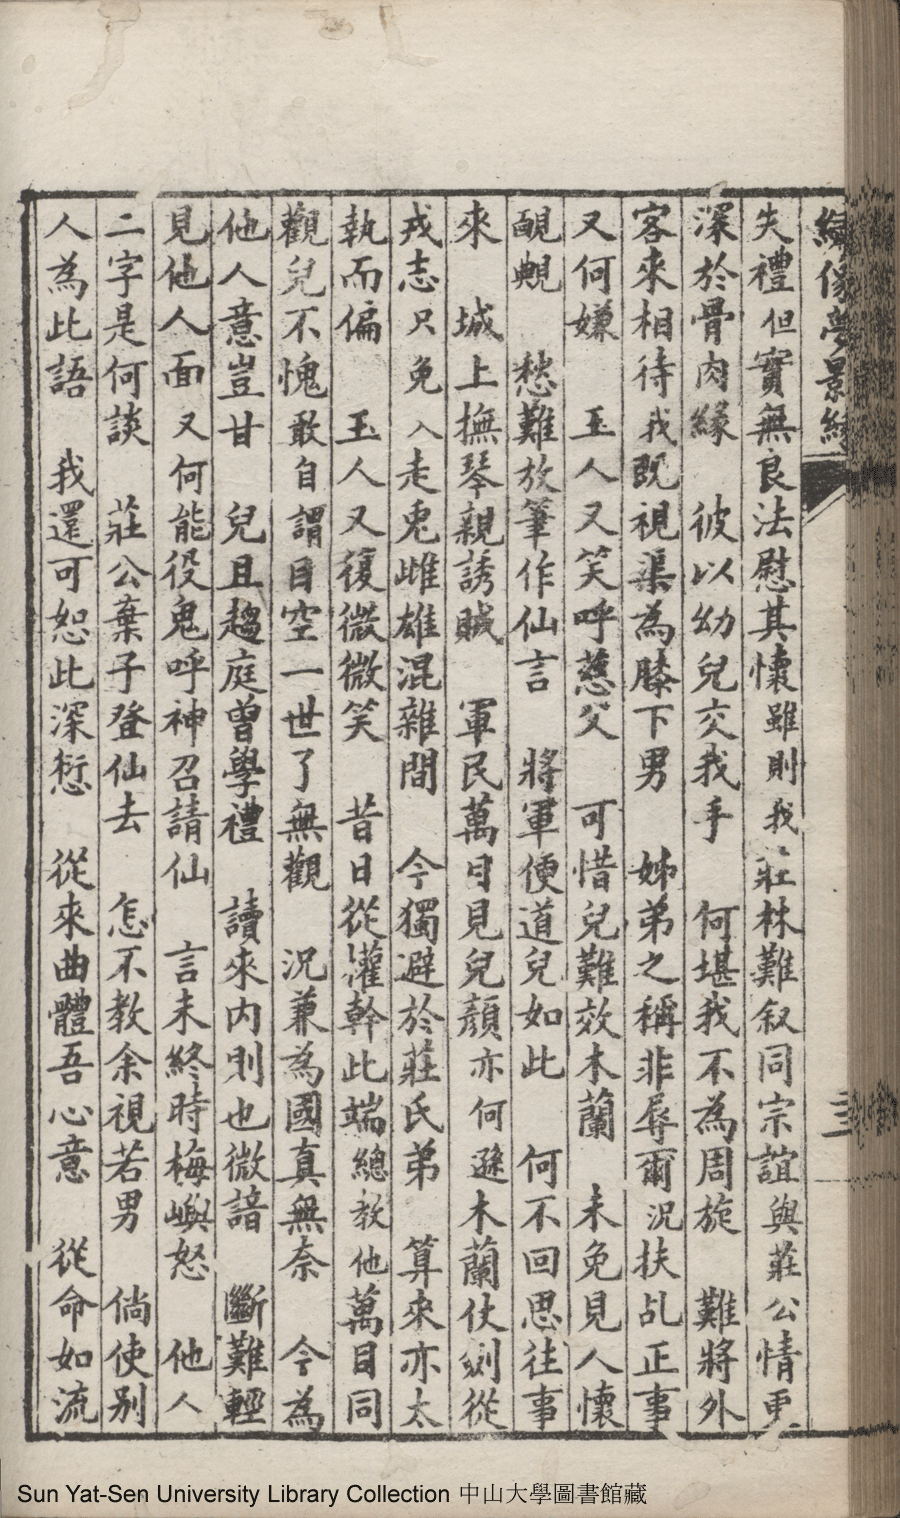 繡像夢景緣
三
失禮但實無良法慰其懷雖則我莊林難叙同宗誼與莊公情更
深於骨肉緣　彼以幼兒交我手　何堪我不為周旋　難將外
客來相待我既視渠為膝下男　姊弟之稱非辱爾況扶乩正事
又何嫌　玉人又笑呼慈父　可惜兒難效木蘭　未免見人懷
靦覥　愁難放筆作仙言　將軍便道兒如此　何不回思往事
來　城上撫琴親誘賊　軍民萬目見兒顏亦何遜木蘭仗劍從
戎志只免入走兎雌雄混雜間　今獨避於莊氏弟　算來亦太
執而偏　玉人又復微微笑　昔日從權幹此端總教他萬目同
觀兒不愧敢自謂目空一世了無觀　況兼為國真無奈　今為
他人意豈甘　兒且趨庭曾學禮　讀來内則也微諳　斷難輕
見他人面又何能役鬼呼神召請仙　言未終時梅嶼怒　他人
二字是何談　莊公棄子登仙去　怎不教余視若男　倘使别
人為此語　我還可恕此深愆　從來曲體吾心意　從命如流
Sun Yat-Sen University Library Collection 中山大學圖書館藏